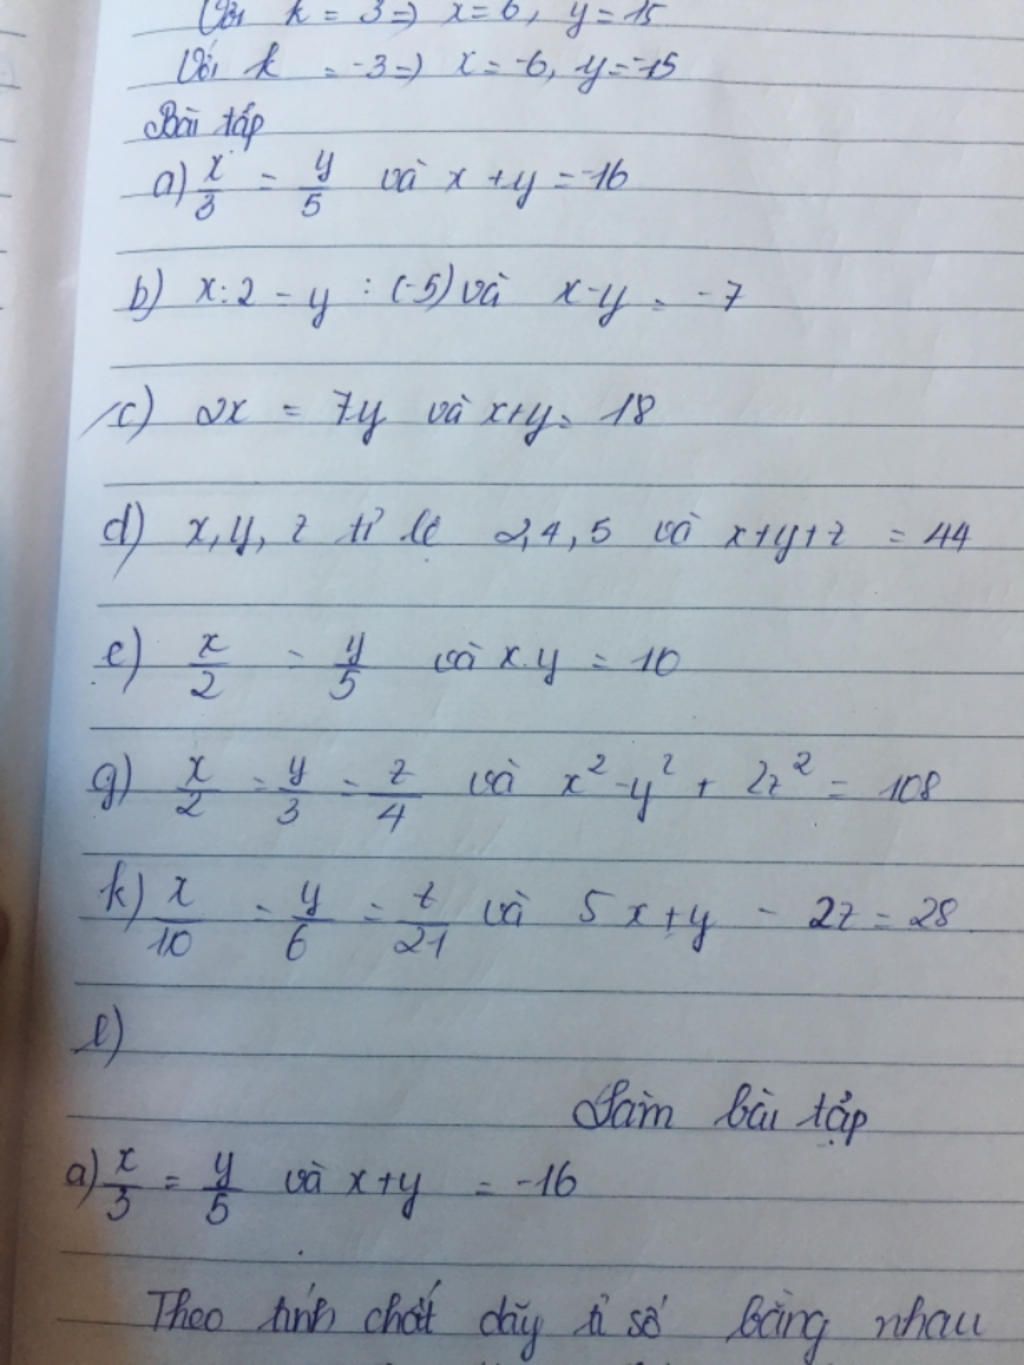 Với k = 3 => x = 6, y = 15
Với k = -3 => x = -6, y = -15
Bài tập
a) x/3 = y/5 và x + y = -16
b) x : 2 = y : (-5) và x - y = -7
c) 2x = 7y và x + y = 18
d) x, y, z tỉ lệ 2, 4, 5 và x + y + z = 44
e) x/2 = y/5 và x.y = 10
g) x/2 = y/3 = z/4 và x² - y² + 2z² = 108
k) x/10 = y/6 = z/21 và 5x + y - 2z = 28
l)
Làm bài tập
a) x/3 = y/5 và x + y = -16
Theo tính chất dãy tỉ số bằng nhau